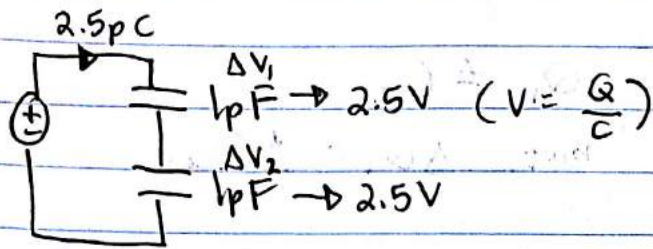 2.5pC
ΔV₁
1pF → 2.5V (V = Q/C)
ΔV₂
1pF → 2.5V